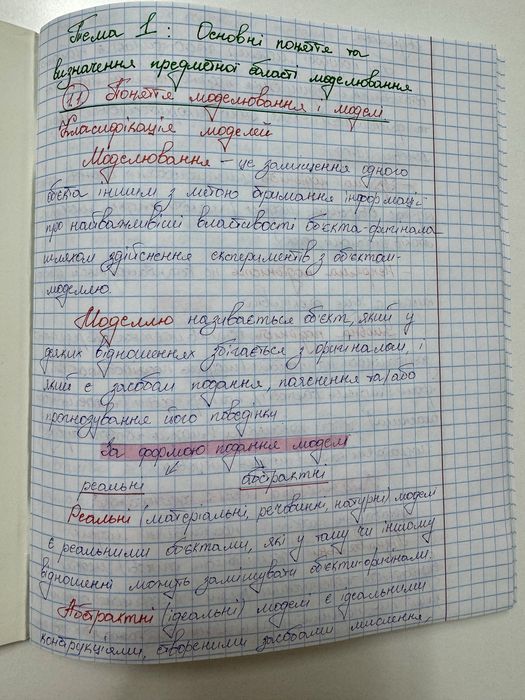 Тема 1: Основні поняття та
визначення предметної області моделювання
1.1 Поняття моделювання і моделі
Класифікація моделей
Моделювання – це заміщення одного
об'єкта іншим з метою отримання інформації
про найважливіші властивості об'єкта-оригінала
шляхом здійснення експериментів з об'єктом-
моделлю.
Моделлю називається об'єкт, який у
деяких відношеннях збігається з оригіналом, і
який є засобом подання, пояснення та/або
прогнозування його поведінку
За формою подання моделі
реальні абстрактні
Реальні (матеріальні, речовинні, натурні) моделі
є реальними об'єктами, які у тому чи іншому
відношенні можуть заміщувати об'єкти-оригінали.
Абстрактні (ідеальні) моделі є ідеальними
конструкціями, створеними засобами мислення,